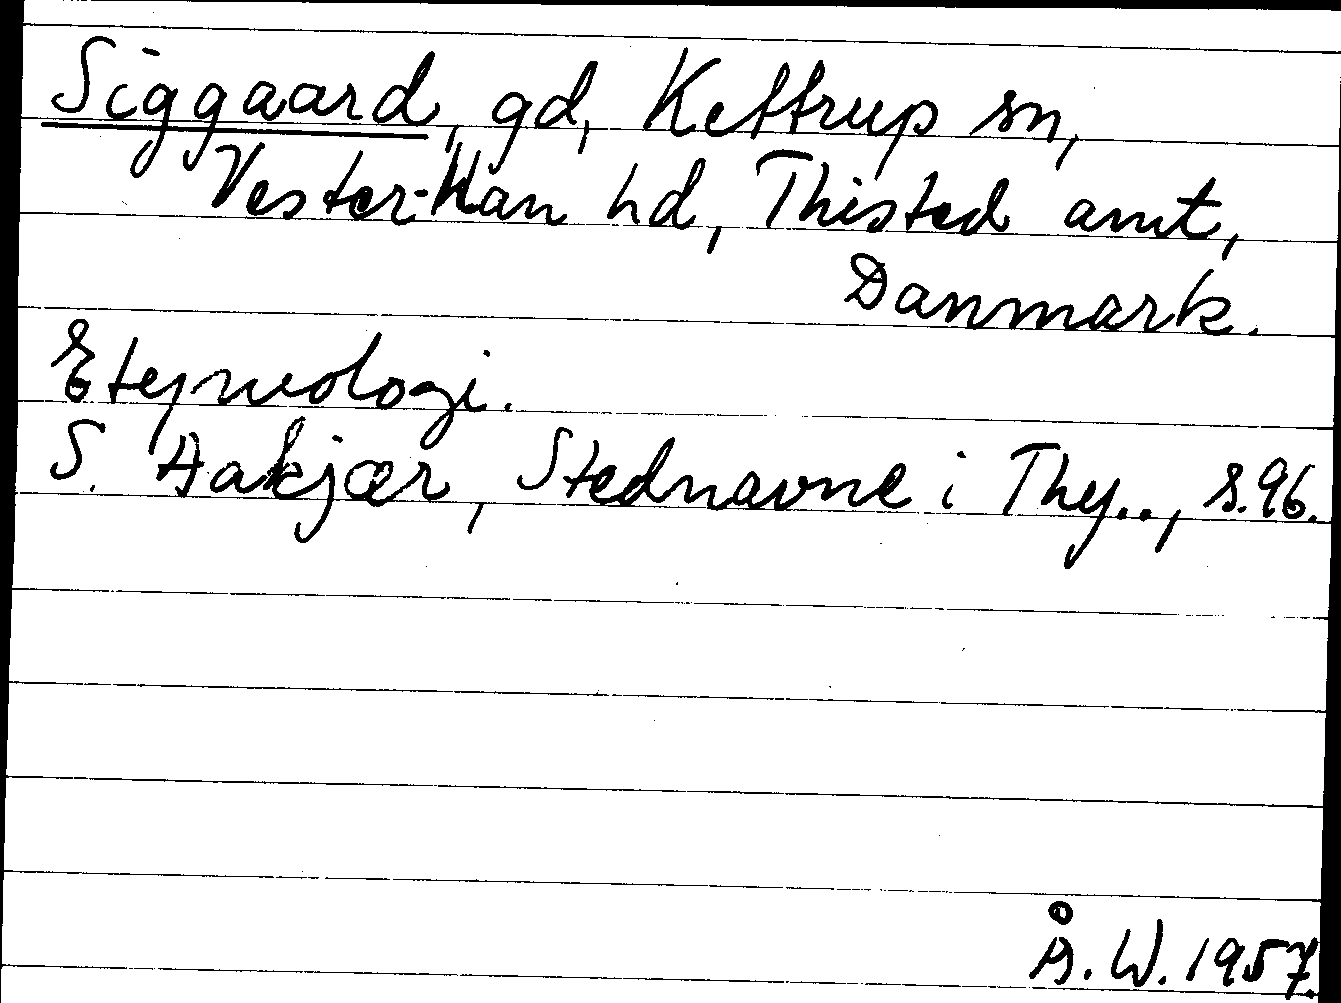 Siggaard, gd, Kettrup sn,
Vester-Han hd, Thisted amt,
Danmark.
Etymologi.
S. Aakjær, Stednavne i Thy.., s.96.
Å.W. 1957.